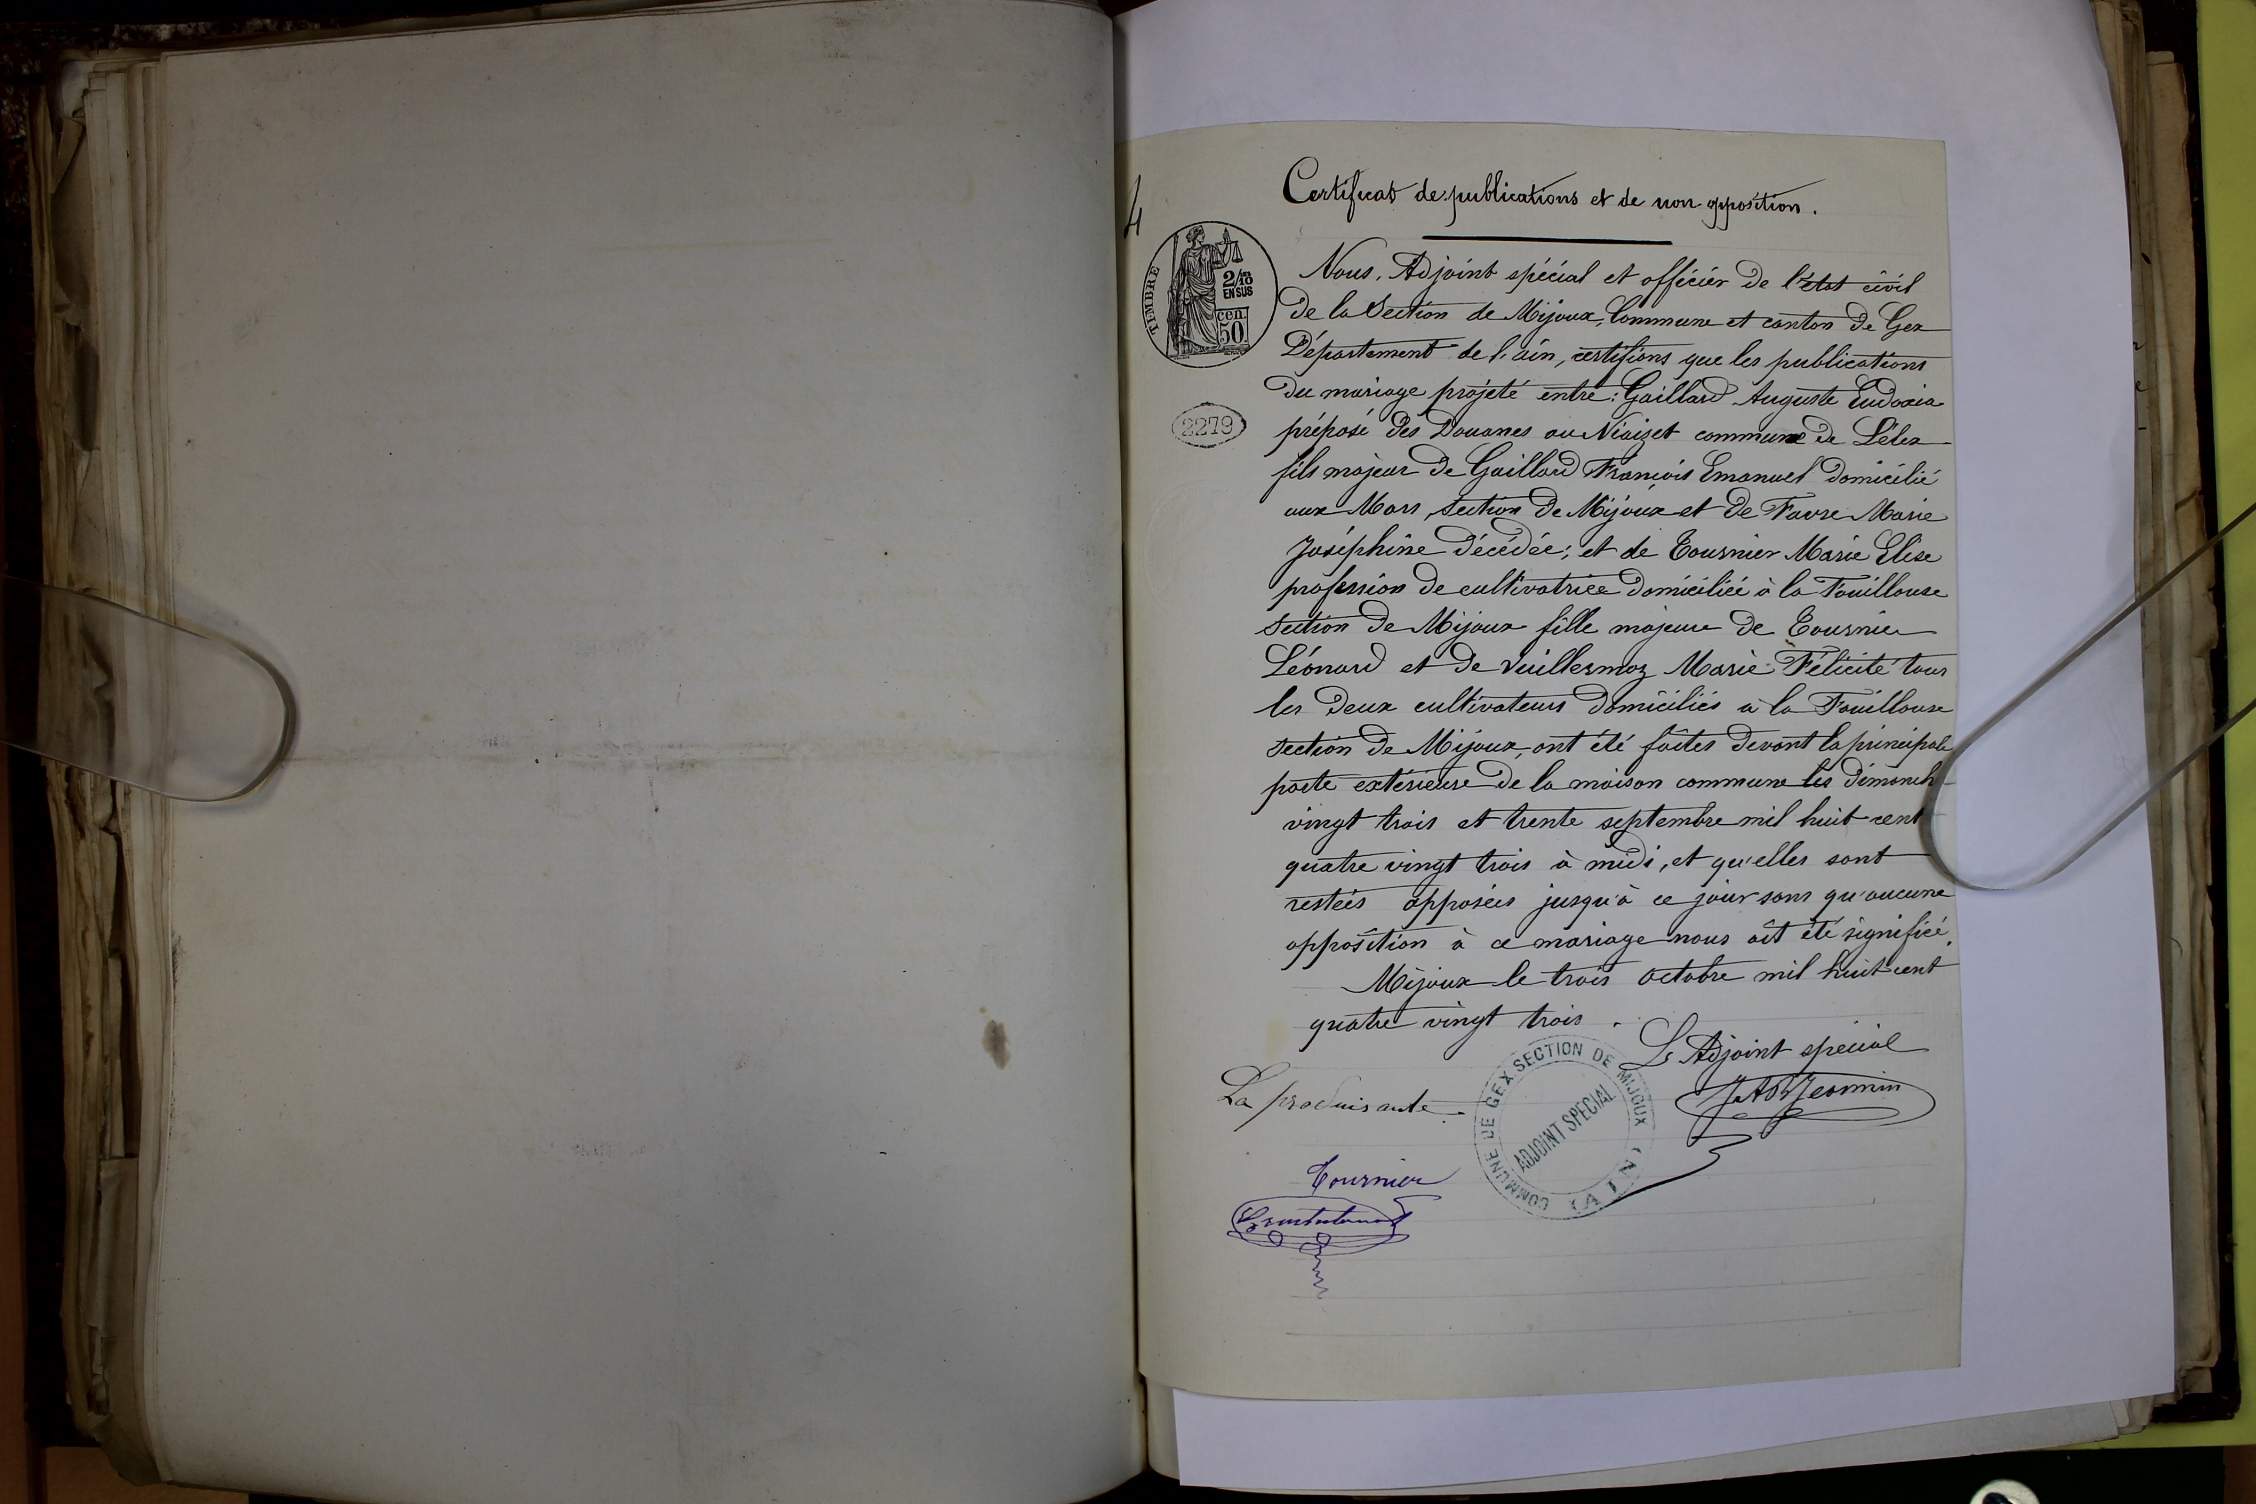 4
Certificat de publications et de non opposition.
TIMBRE
2/10
EN SUS
cen.
50
2279
Nous, Adjoint spécial et officier de l'état civil
de la Section de Mijoux, Commune et canton de Gex
Département de l'ain, certifions que les publications
du mariage projeté entre : Gaillard Auguste Eudoxia
préposé des Douanes au Niaizet commune de Lélex
fils majeur de Gaillard François Emanuel domicilié
aux Mars, section de Mijoux et de Favre Marie
Joséphine décédée ; et de Tournier Marie Elise
profession de cultivatrice domiciliée à la Fouillouse
section de Mijoux fille majeure de Tournier
Léonard et de Vuillermoz Marie Félicité tous
les deux cultivateurs domiciliés à la Fouillouse
section de Mijoux, ont été faites devant la principale
porte extérieure de la maison commune les dimanch
vingt trois et trente septembre mil huit cent
quatre vingt trois à midi, et qu'elles sont
restées apposées jusqu'à ce jour sans qu'aucune
opposition à ce mariage nous ait été signifiée.
Mijoux le trois octobre mil huit cent
quatre vingt trois.
Le Adjoint spécial
La produisante
COMMUNE DE GEX SECTION DE MIJOUX
ADJOINT SPECIAL
(AIN)
Tournier